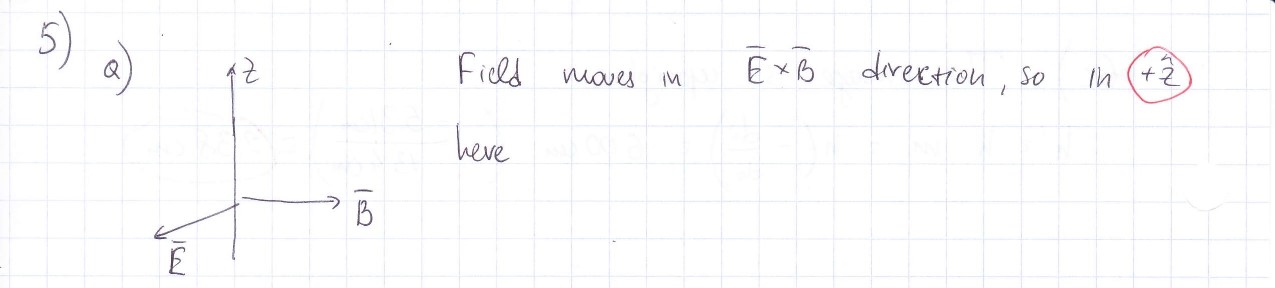 5)
a)
z
Field moves in E̅ × B̅ direction, so in +ẑ
here
B̅
E̅